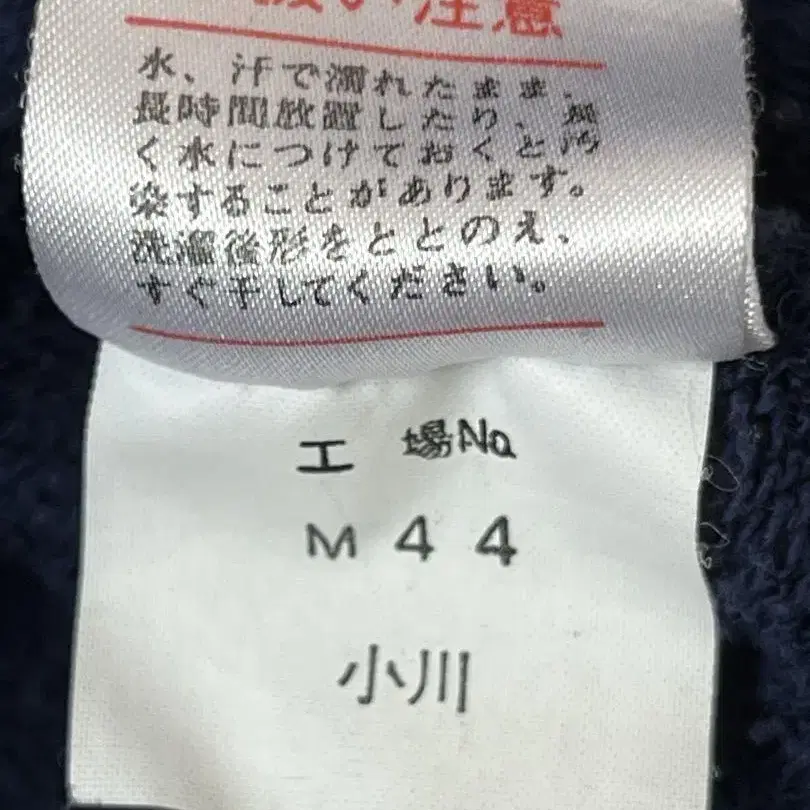 扱い注意
水、汗で濡れたまま、
長時間放置したり、
く水につけておくと汚
染することがあります。
洗濯後形をととのえ、
すぐ干してください。
工場No
M44
小川